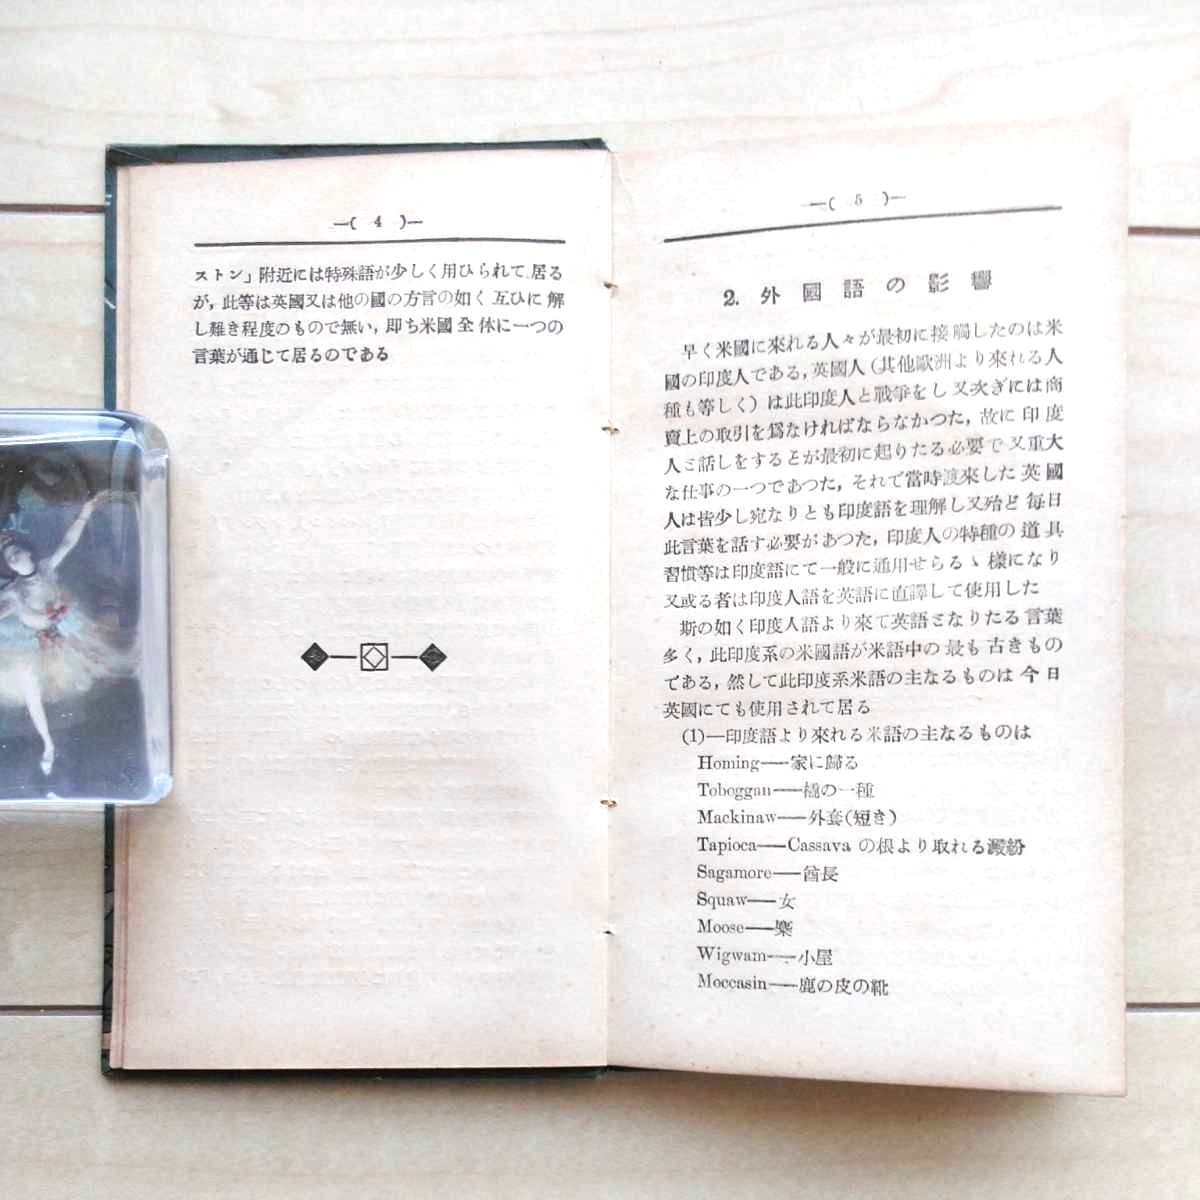 —( 4 )—
ストン」附近には特殊語が少しく用ひられて居る
が，此等は英國又は他の國の方言の如く互ひに解
し難き程度のもので無い，卽ち米國全体に一つの
言葉が通じて居るのである
—( 5 )—
2. 外國語の影響
早く米國に來れる人々が最初に接觸したのは米
國の印度人である，英國人（其他歐洲より來れる人
種も等しく）は此印度人と戰爭をし又次ぎには商
賣上の取引を爲なければならなかつた，故に印度
人と話しをするとが最初に起りたる必要で又重大
な仕事の一つであつた，それで當時渡來した英國
人は皆少し宛なりとも印度語を理解し又殆ど每日
此言葉を話す必要があつた，印度人の特種の道具
習慣等は印度語にて一般に通用せらるゝ樣になり
又或る者は印度人語を英語に直譯して使用した
斯の如く印度人語より來て英語となりたる言葉
多く，此印度系の米國語が米語中の最も古きもの
である，然して此印度系米語の主なるものは今日
英國にても使用されて居る
(1)—印度語より來れる米語の主なるものは
Homing——家に歸る
Toboggan——橇の一種
Mackinaw——外套（短き）
Tapioca——Cassava の根より取れる澱紛
Sagamore——酋長
Squaw——女
Moose——麋
Wigwam——小屋
Moccasin——鹿の皮の靴